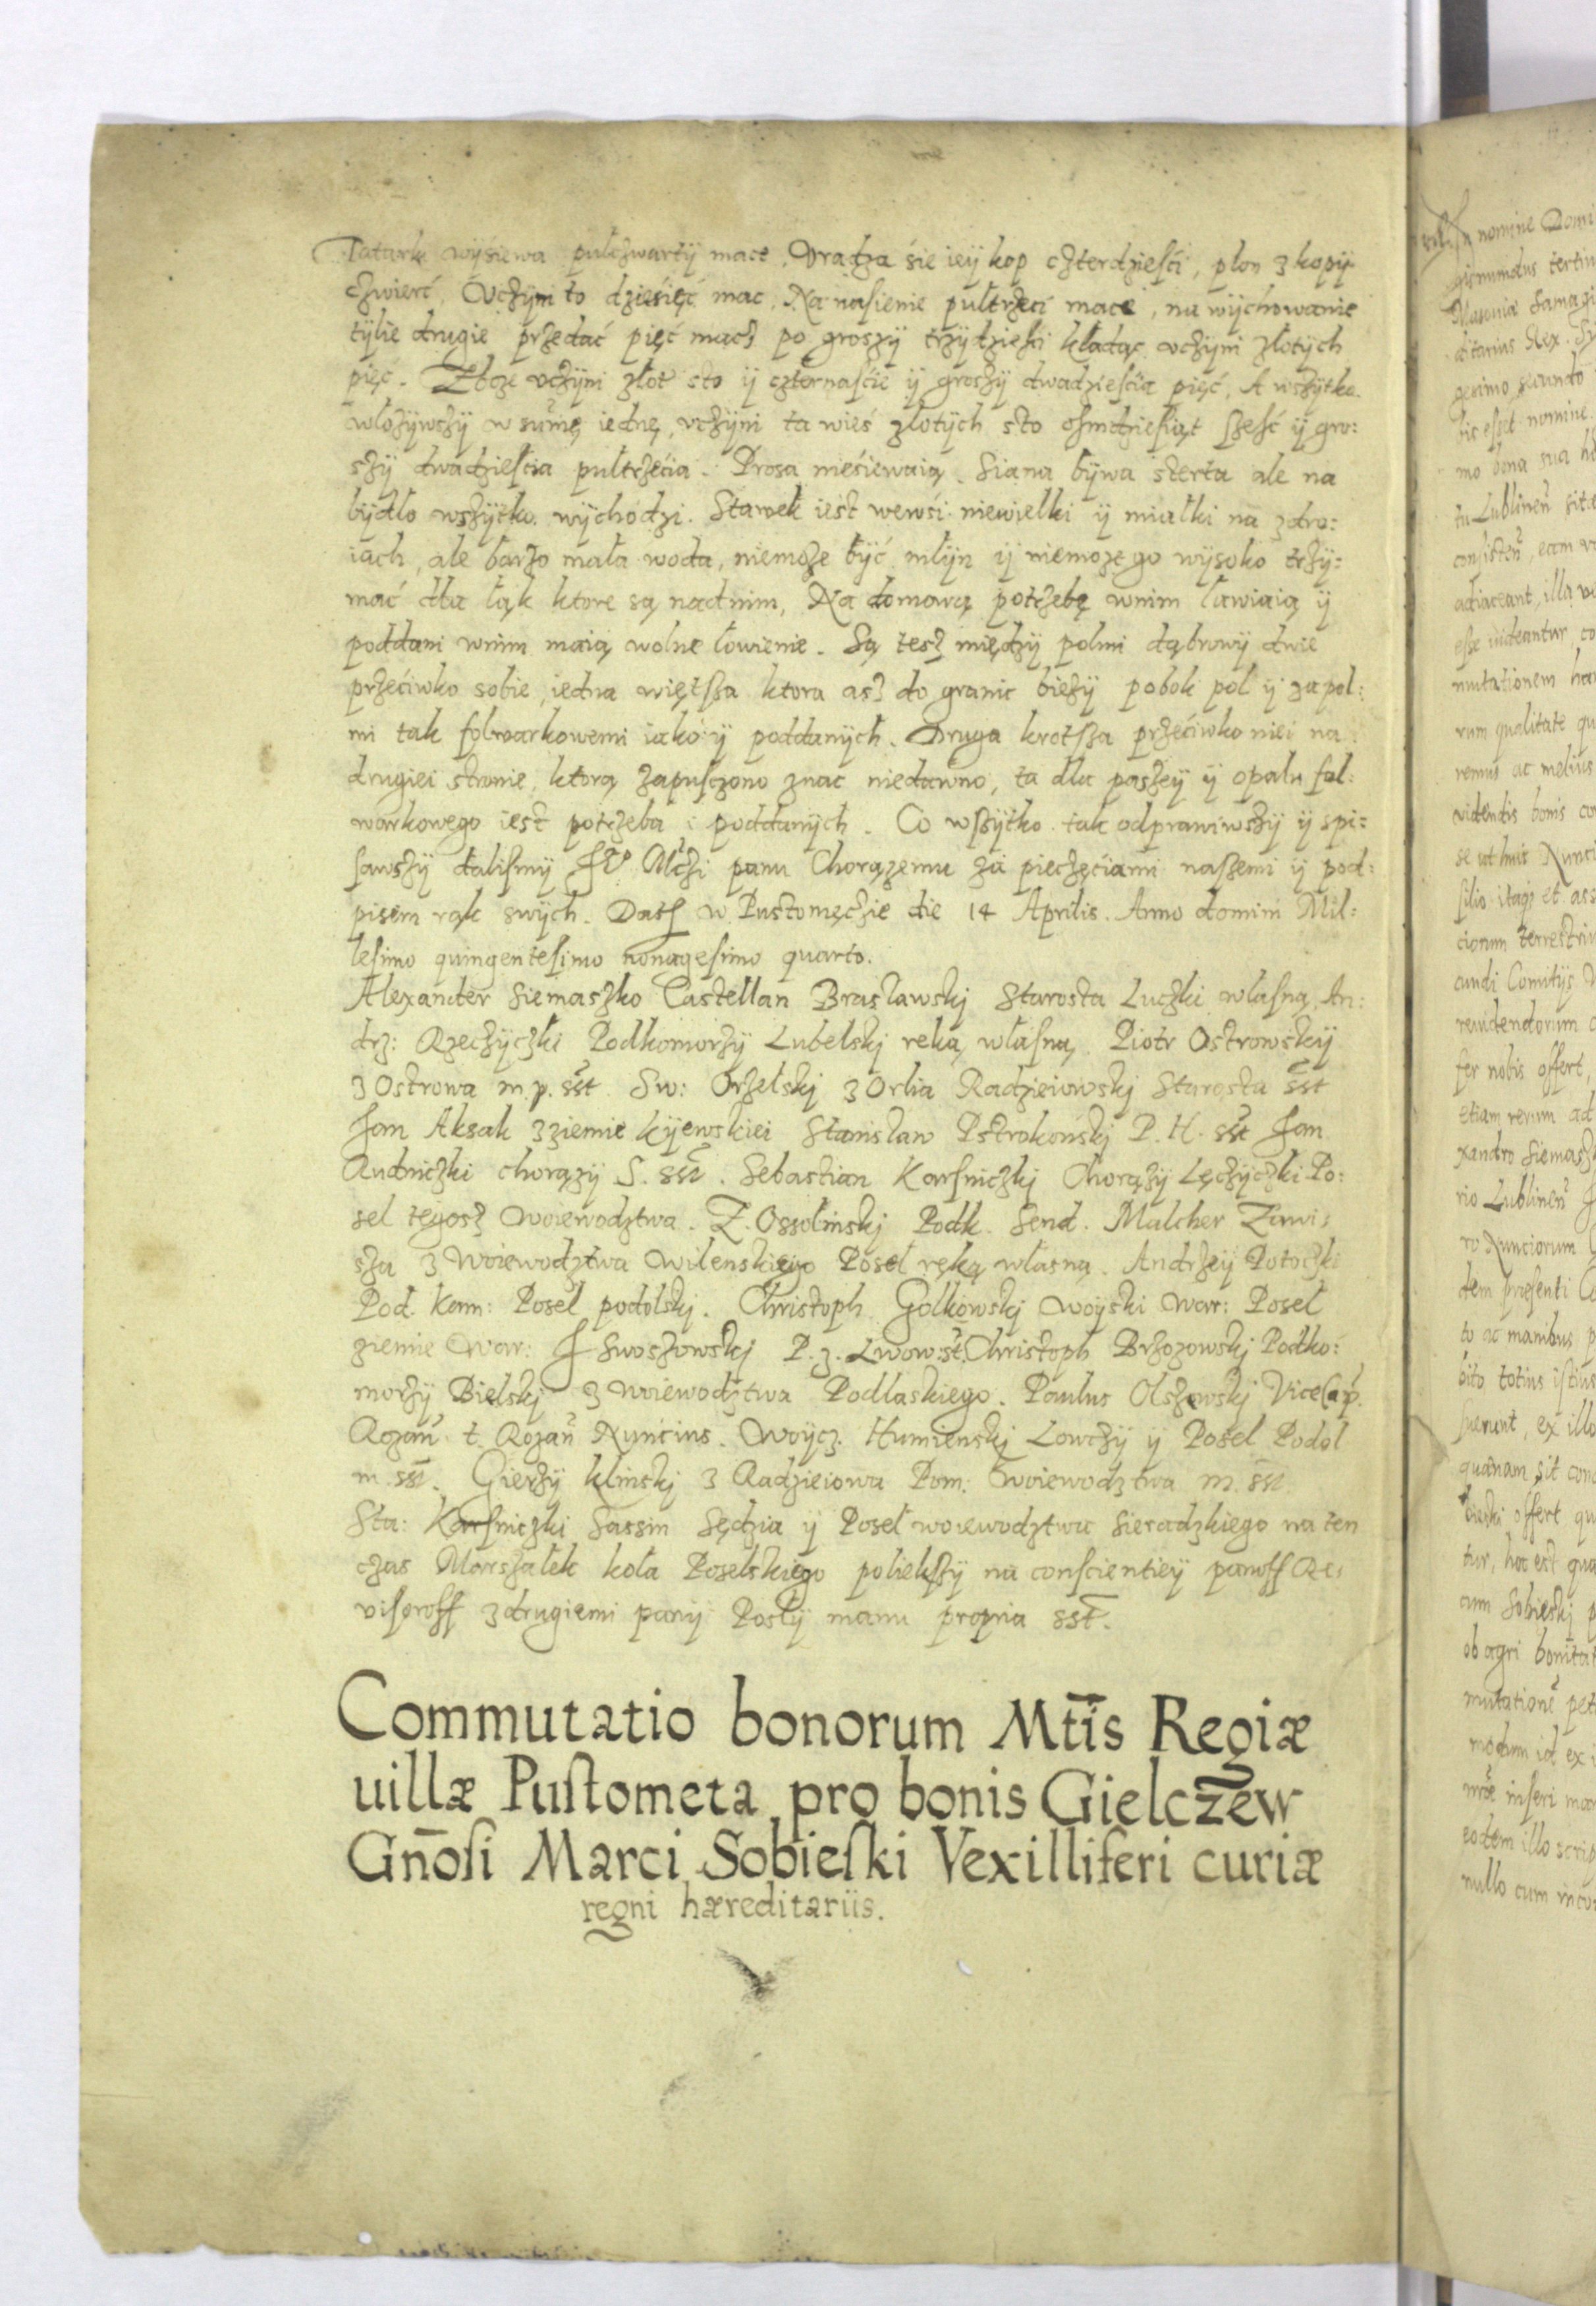 Tatark wysiewa pułczwarty mace. Vradza sie iey kop czterdziesci, plon z kopy
czwierć, Vczyni to dziesięć mac. Na nasienie pułtrzeci mace, na wychowanie
tylie drugie przedać pięć macz po groszy trzydziesci kładąc vczyni złotych
pięć. Zboże vczyni złot sto y czternascie y groszy dwadziescia pięć, A wszytko
włożywszy w summę iednę, vczyni ta wieś złotych sto osmdziesiąt szesć y gro:
szy dwadziescia pułtrzecia. Prosa niesiewaią. Siana bywa sterta ale na
bydło wszytko wychodzi. Stawek iest wewsi niewielki y miałki na zdro:
iach, ale barzo mała woda, niemoże być młyn y niemoże go wysoko trzy:
mać dla łąk ktore są nadnim, Na domową potrzebę wnim ławiaią y
poddani wnim maią wolne łowienie. Są tesz między polmi dąbrowy dwie
przeciwko sobie, iedna więtsza ktora asz do granic bieży pobok pol y zapol:
mi tak folwarkowemi iako y poddanych. Druga krotsza przeciwko niei na
drugiei stronie, ktorą zapusczono znac niedawno, ta dla paszey y opalu fol:
warkowego iest potrzeba i poddanych. Co wszytko tak odprawiwszy y spi:
sawszy dalismy Je° Mczi panu Chorązemu za pieczęciami naszemi y pod:
pisem rąk swych. Datz w Pustomęczie die 14 Aprilis. Anno domini Mil:
lesimo quingentesimo nonagesimo quarto.
Alexander Siemaszko Castellan Brasławskj Starosta Luczki własną, An:
drz: Rzeczyczki Podkomorzy Lubelskj reką własną Piotr Ostrowskij
z Ostrowa m. p. sst Sw: Orzelskj z Orlia Radzieiowskj Starosta sst
Jan Aksak z ziemie kijewskiei Stanisław Pstrokońskj P. H. sst Jan
Rudniczki chorązy S. sst. Sebastian Karsniczkj Chorąży Łęczyczki Po:
sel tegosz woiewodztwa. Z. Ossolinskj Podk. Send. Malcher Zawi:
sza z Woiewodztwa wilenskiego Posel ręką własną. Andrzey Potoczki
Pod. Kam: Posel podolskj. Christoph Golkowskj woyski War: Posel
ziemie War: J Swoszowskj P. z. Lwow: st. Christoph Brzozowskj Podko:
morzy Bielskj z woiewodztwa Podlaskiego. Paulus Olszowskj ViceCap.
Rozan t. Rozan Nuncius. Woycz. Humienskj Łowczy y Posel Podol
m. sst. Gierzy klinskj z Radzieiowa Pom: woiewodztwa m. sst.
Sta: Karsniczki Sassin Sędzia y Posel woiewodztwa Sieradzkiego na ten
czas Marszałek koła Poselskiego polieksży na conscientiey panoff Re:
uisoroff z drugiemi pany Posly manu propria sst.
Commutatio bonorum Mtis Regiæ
uillæ Pustometa pro bonis Gielczew
Gnosi Marci Sobieski Vexilliferi curiæ
regni hæreditariis.
nomine Domi
gismundus tertiu
Masoniæ Samagi
ditarius Rex.
gesimo secundo
esset nomine
mo bona sua
tu Lublinen
adiaceant, illa
esse uideantur,
mutationem
rum qualitate
remus ac melius
uidendis bonis
Nunci
silio itaq et
ciorum terrestriu
cundi Comitijs
reuidendorum
fer nobis offert,
etiam rerum ad
xandro Siemasz
rio Lublinen
ro Nunciorum
dem præsenti
to ac manibus
totius istius
fuerunt, ex illo
quanam sit
offert
tur, hoc est
cum Sobieskj
ob agri bonitat
mutatione
id ex
inseri
eodem illo
nullo cum